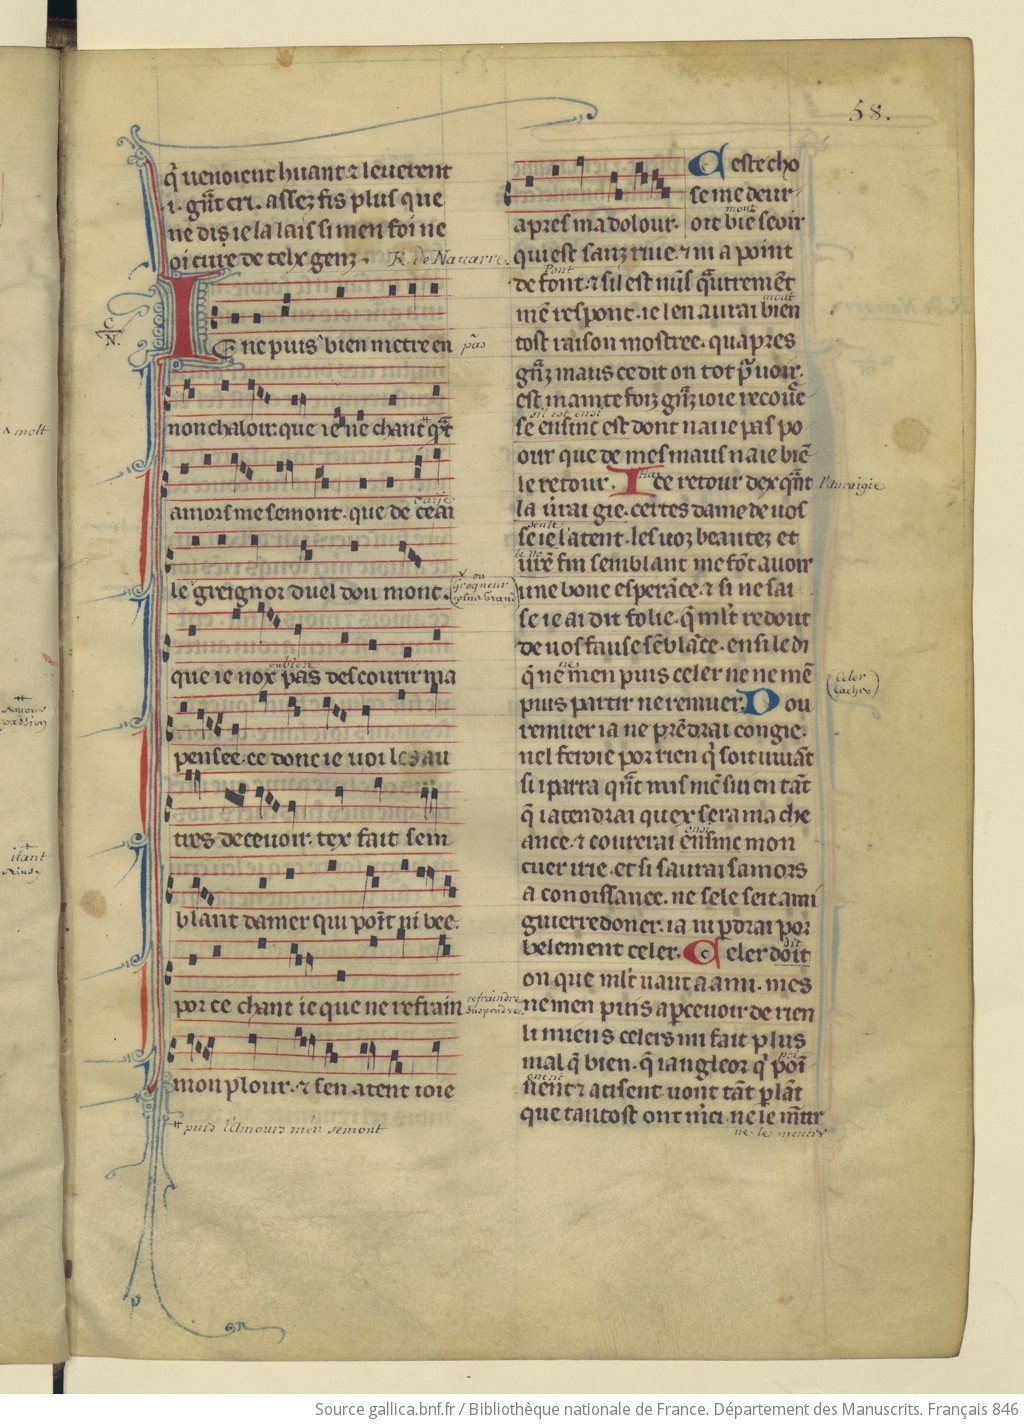 58.
q̃ uenoient huant ⁊ leuerent
.i. gñt cri. assez fis plus que
ne dis ie la lais si men foi ne
oi cure de telx genz.
R. de Nauarre.
I E ne puis bien metre en
pas
non chaloir: que ie ne chant q̃nt
amors me semont. que de ce ai
le greignor duel dou mont.
que ie nox pas descourir ma
pensee. ce donc ie uoi les au
tres deceuoir. tex fait sem
blant damer qui point ni bee.
por ce chant ie que ne refrain
mon plour. ⁊ sen atent ioie
# puis l'Amours m'en semont
apres ma dolour.
Ceste cho
se me deur
oit biē seoir
qui est sanz riue. ⁊ ni a point
de font. ⁊ sil est nus q̃utremēt
mē respont. ie len aurai bien
tost raison mostree. quapres
gñz maus ce dit on tot p̃ uoir.
est mainte foiz gñz ioie recoũe
se ensinc est dont naue pas po
our que de mes maus naie biē
le retour. I ce retour dex q̃nt
l'auraigie
la urai gie. certes dame de uos
se ie latent. les uoz beautez et
urē fin semblant me fōt auoir
une bone esperāce. ⁊ si ne sai
se ie ai dit folie. q̃ mlt redout
de uos fause sēblāce. en si le di
q̃ ne men puis celer ne ne mē
puis partir ne remuer. Dou
celer
cacher
remuer ia ne prēdrai congie.
nel feroie por rien q̃ soit uiuāt
si i parra q̃nt mis mē sui en tāt
q̃ iatendrai quex sera ma che
ance. ⁊ courerai ensinc mon
cuer irie. et si saurai samors
a conoissance. ne sele seit ami
guierredoner. ia ni pdrai por
belement celer. Celer doit
on que mlt uaut a ami. mes
ne men puis apceuoir de rien
li miens celers mi fait plus
mal q̃ bien. q̃ iangleor q̃ poī
nēnt ⁊ atisent uont tāt plāt
que tantost ont mci. ne ie mētir
ne le mentir
Source gallica.bnf.fr / Bibliothèque nationale de France. Département des Manuscrits. Français 846